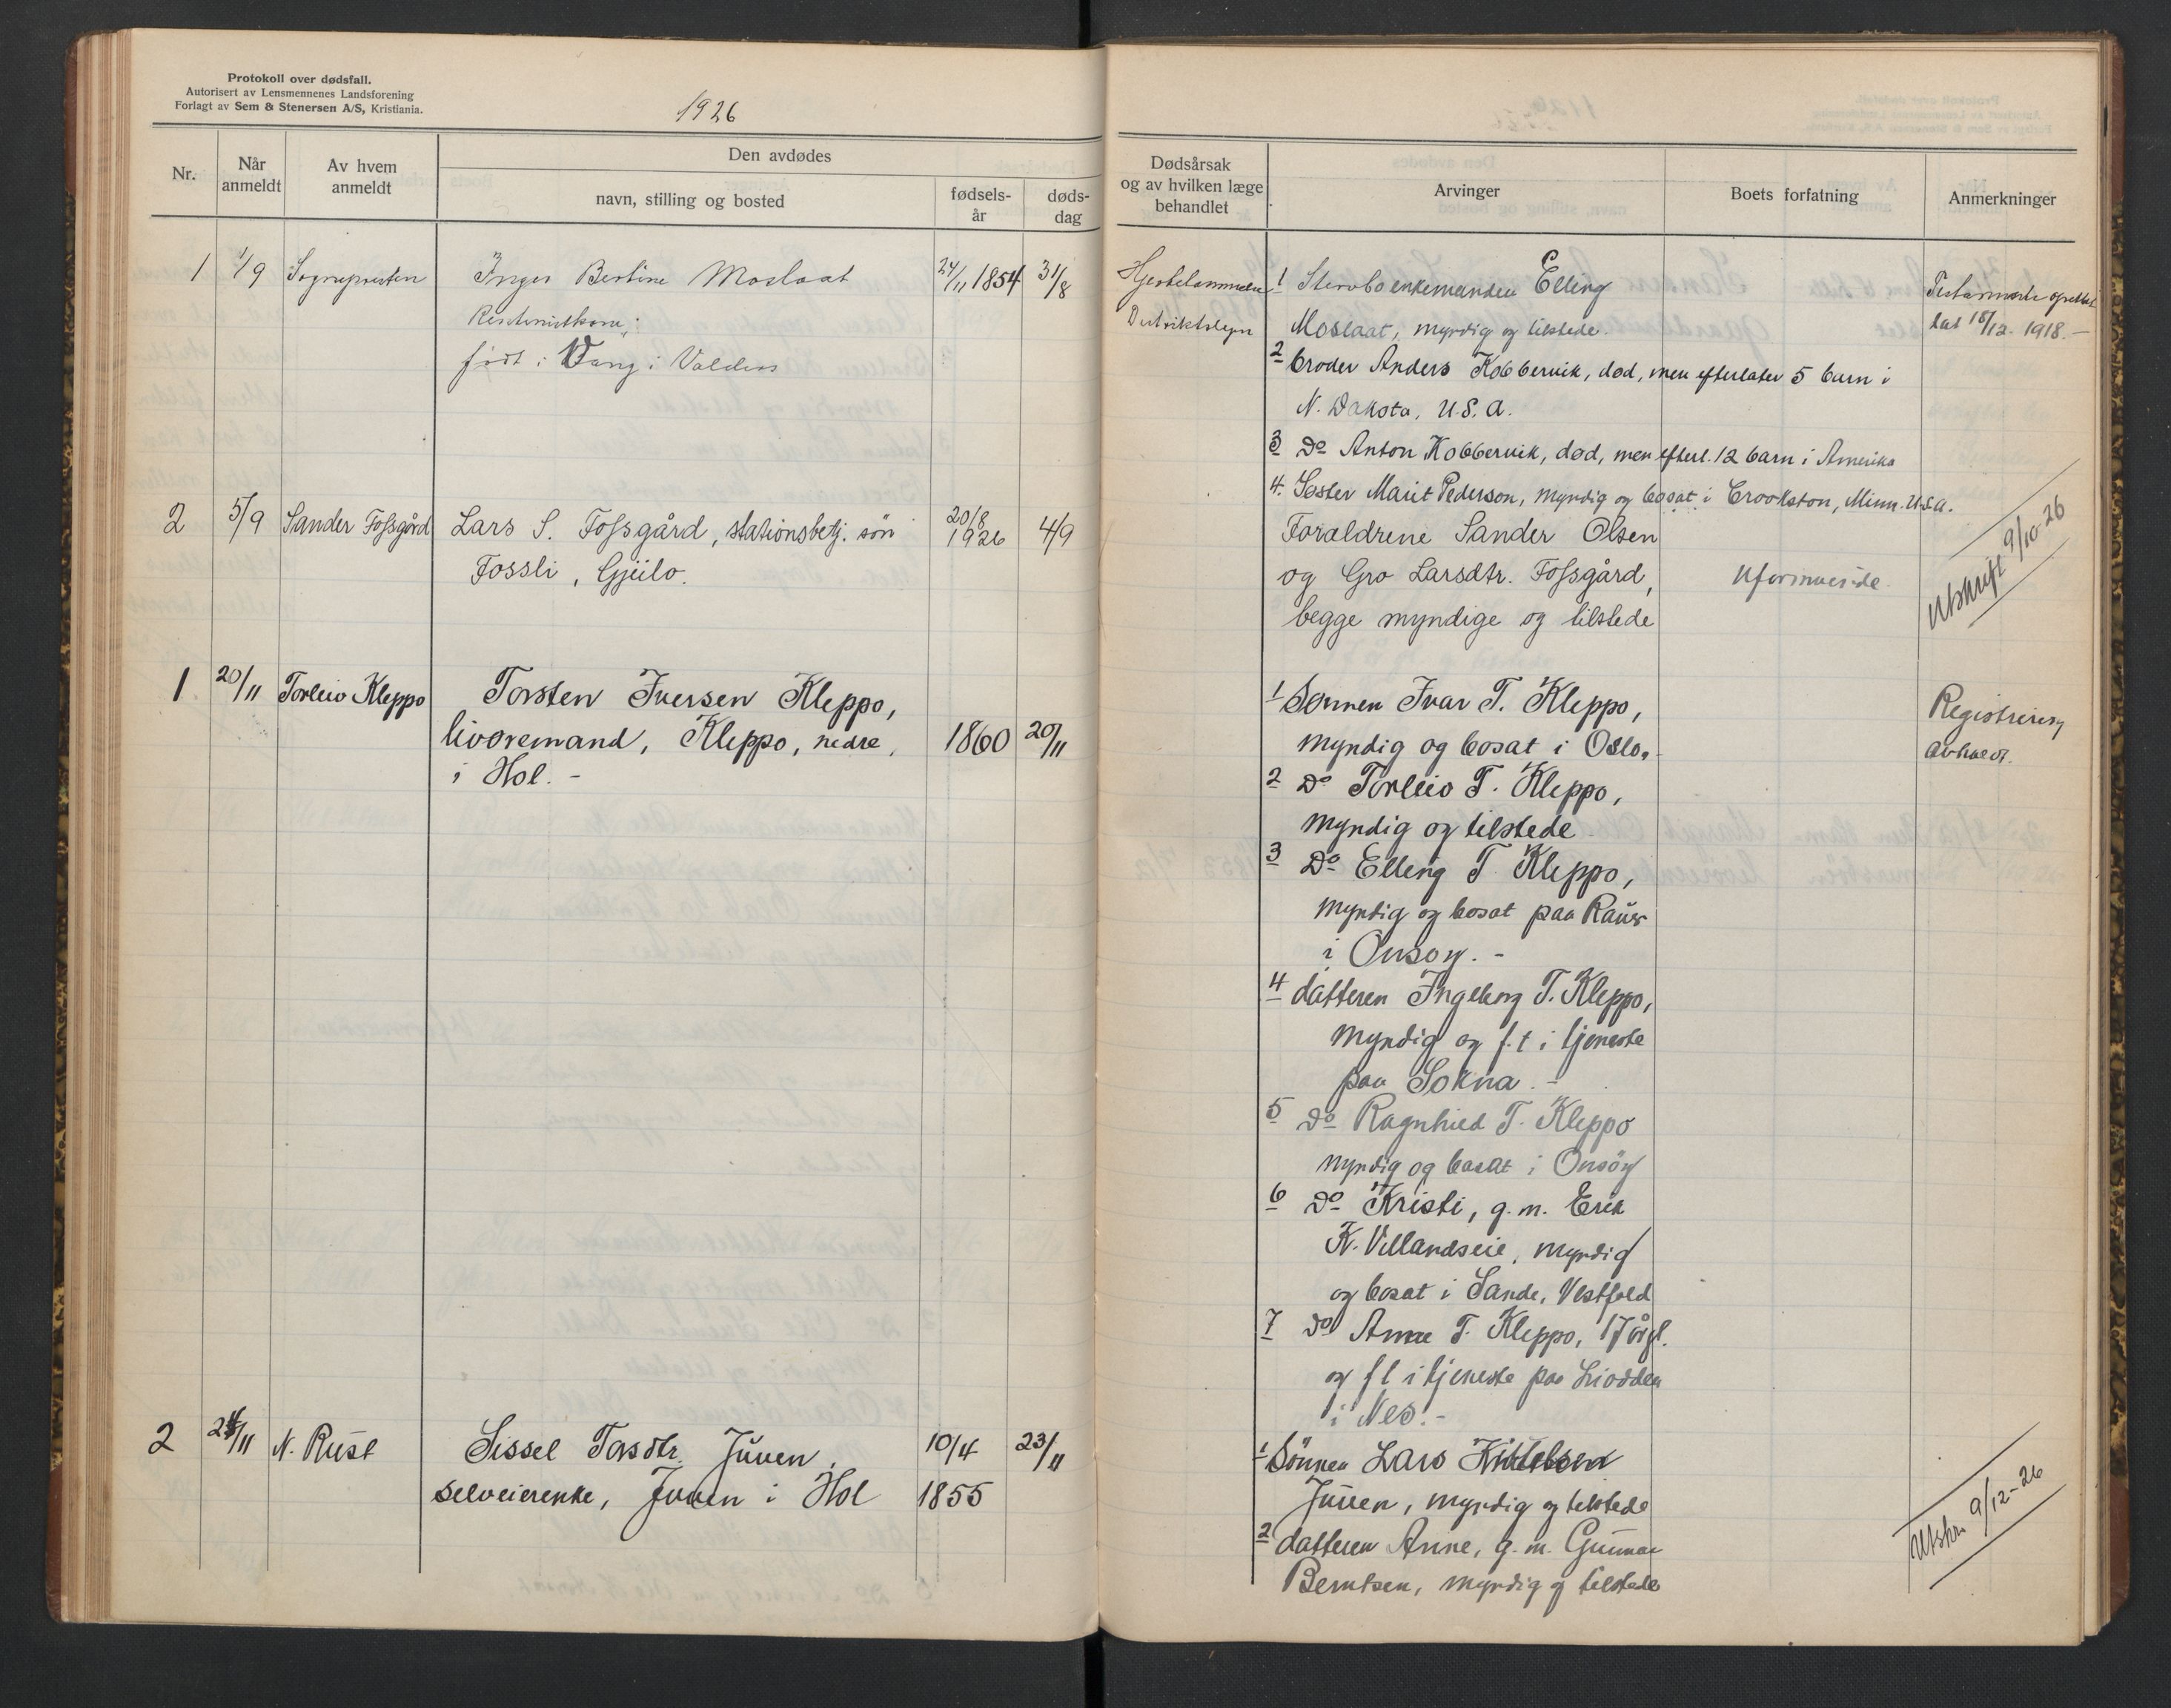 Protokoll over dødsfall.
Autorisert av Lensmennenes Landsforening
Forlagt av Sem & Stenersen A/S, Kristiania.
1926
Nr.
Når anmeldt
Av hvem anmeldt
Den avdødes
navn, stilling og bosted
fødsels-
år
døds-
dag
Dødsårsak
og av hvilken læge
behandlet
Arvinger
Boets forfatning
Anmerkninger
1 1/9 Sognepresten Inger Bertine Moslaat 24/11 1854 31/8
født i Vang i Valdres
Distriktslegen
1 Stervboenkemanden Elling
Moslaat, myndig og tilstede.
2 broder Anders Kobbervik, død, men efterlater 5 barn i
N. Dakota, U.S.A.
3 Do Anton Kobbervik, død, men efterl. 12 barn i Amerika
4. Søster Marit Pederson, myndig og bosat i Crookston, Minn. U.S.A.
Testamente oprettet
18/12 - 1918. -
2 5/9 Sander Fossgård Lars S. Fossgård, stationsbetj. søn 20/8 1926 4/9
Fossli, Gjeilo.
Foræeldrene Sander Olsen
og Gro Larsdtr. Fossgård,
begge myndige og tilstede
Uformuende.
Utskrift 9/10-26
1 20/11 Torleiv Kleppo Torsten Iversen Kleppo,
livøremand, Kleppo, nedre, 1860 20/11
i Hol. -
1 Sønnen Ivar T. Kleppo,
myndig og bosat i Oslo.
2 Do Torleiv T. Kleppo,
myndig og tilstede.
3 Do Elling T. Kleppo,
myndig og bosat paa Rauer
i Onsøy. -
4 datteren Ingeborg T. Kleppo,
myndig og f.t i tjeneste
paa Sokna. -
5 Do Ragnhild T. Kleppo
myndig og bosat i Onsöy
6 Do Kristi, g.m. Erik
K. Villandseie, myndig
og bosat i Sande, Vestfold
7 do Anne T. Kleppo, 17 årgl.
og f t i tjeneste paa Liodden
i Nes. -
Registrering
avholdt.
2 24/11 N. Rust Sissel Torsdtr. Juven, 10/4 23/11
selveierenke, Juven i Hol 1855
1 Sönnen Lars Kittelsen
Juven, myndig og tilstede
2 datteren Anne, g.m. Gunnar
Berntsen, myndig og tilstede
Utskr. 9/12-26